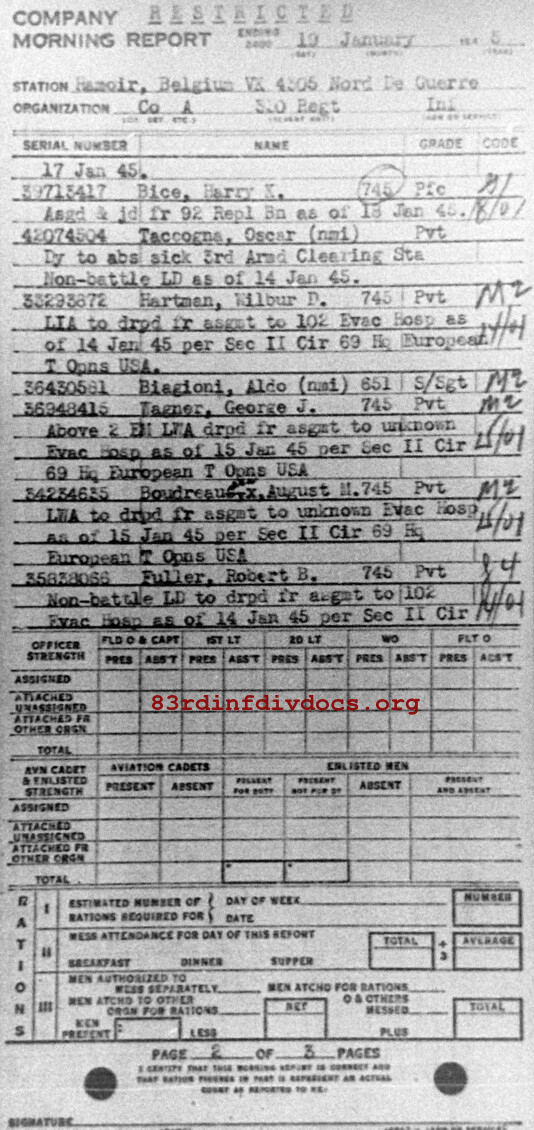 COMPANY RESTRICTED
MORNING REPORT ENDING 2400 19 January 194 5
STATION Hamoir, Belgium VK 4305 Nord De Guerre
ORGANIZATION Co A 330 Regt Inf
SERIAL NUMBER NAME GRADE CODE
17 Jan 45.
39713417 Bice, Harry K. 745 Pfc
Asgd & jd fr 92 Repl Bn as of 18 Jan 45. 18/01
42074504 Taccogna, Oscar (nmi) Pvt
Dy to abs sick 3rd Armd Clearing Sta
Non-battle LD as of 14 Jan 45.
33293872 Hartman, Wilbur D. 745 Pvt M2
LIA to drpd fr asgmt to 102 Evac Hosp as 14/01
of 14 Jan 45 per Sec II Cir 69 Hq European
T Opns USA.
36430561 Biagioni, Aldo (nmi) 651 S/Sgt M2
36948415 Wagner, George J. 745 Pvt M2
Above 2 EM LWA drpd fr asgmt to unknown
Evac Hosp as of 15 Jan 45 per Sec II Cir 15/01
69 Hq European T Opns USA
34234635 Boudreaux, August M. 745 Pvt M2
LWA to drpd fr asgmt to unknown Evac Hosp
as of 15 Jan 45 per Sec II Cir 69 Hq 15/01
European T Opns USA
35838066 Fuller, Robert B. 745 Pvt 84
Non-battle LD to drpd fr asgmt to 102
Evac Hosp as of 14 Jan 45 per Sec II Cir 14/01
OFFICER STRENGTH FLD O & CAPT 1ST LT 2D LT WO FLT O
PRES ABS'T PRES ABS'T PRES ABS'T PRES ABS'T PRES ABS'T
ASSIGNED
ATTACHED UNASSIGNED
83rdinfdivdocs.org
ATTACHED FR OTHER ORGN
TOTAL
AVN CADET & ENLISTED STRENGTH AVIATION CADETS ENLISTED MEN
PRESENT ABSENT PRESENT FOR DUTY PRESENT NOT FOR DY ABSENT PRESENT AND ABSENT
ASSIGNED
ATTACHED UNASSIGNED
ATTACHED FR OTHER ORGN
TOTAL
RATIONS
I ESTIMATED NUMBER OF RATIONS REQUIRED FOR DAY OF WEEK DATE NUMBER
II MESS ATTENDANCE FOR DAY OF THIS REPORT TOTAL ÷ 3 AVERAGE
BREAKFAST DINNER SUPPER
III MEN AUTHORIZED TO MESS SEPARATELY MEN ATCHD FOR RATIONS
MEN ATCHD TO OTHER ORGN FOR RATIONS NET O & OTHERS MESSED TOTAL
MEN PRESENT LESS PLUS
PAGE 2 OF 3 PAGES
I CERTIFY THAT THIS MORNING REPORT IS CORRECT AND
THAT RATION FIGURES IN PART III REPRESENT AN ACTUAL
COUNT AS REPORTED TO ME:
SIGNATURE